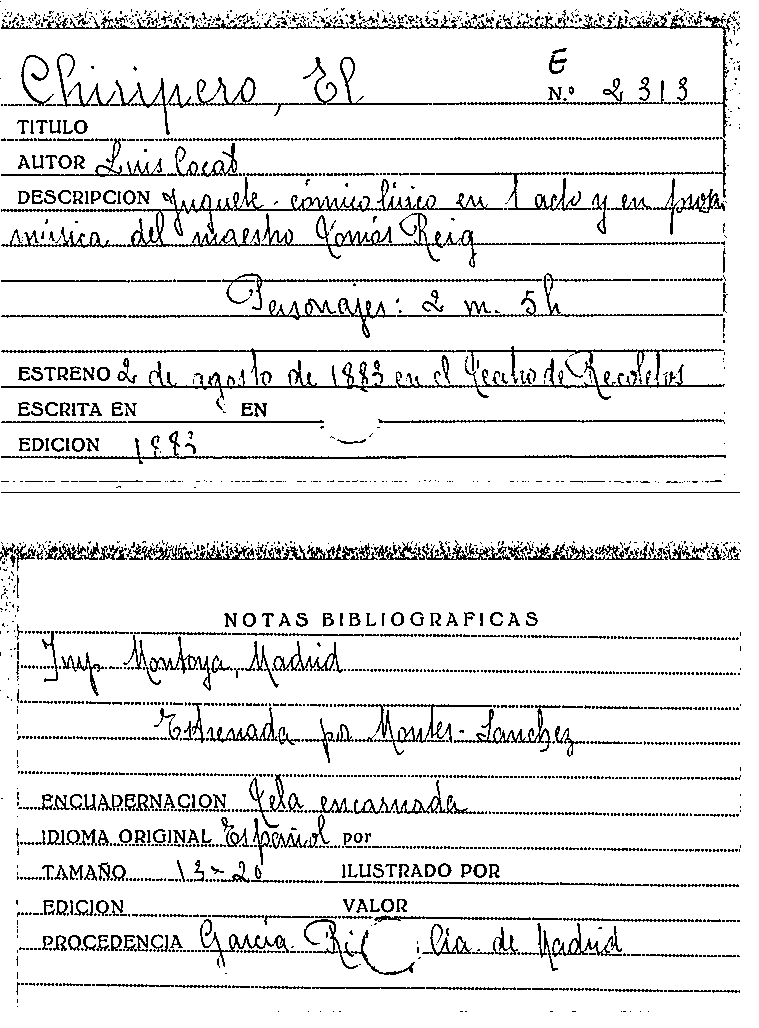 Chiripero, El
E
N.º 2313
TITULO
AUTOR Luis Cocat
DESCRIPCION Juguete cómico lírico en 1 acto y en prosa
música del maestro Tomás Reig
Personajes: 2 m. 5h
ESTRENO 2 de agosto de 1883 en el Teatro de Recoletos
ESCRITA EN EN
EDICION 1883
NOTAS BIBLIOGRAFICAS
Imp Montoya, Madrid
Estrenada por Montes-Sanchez
ENCUADERNACION Tela encarnada
IDIOMA ORIGINAL Español por
TAMAÑO 13-20 ILUSTRADO POR
EDICION VALOR
PROCEDENCIA García de Madrid